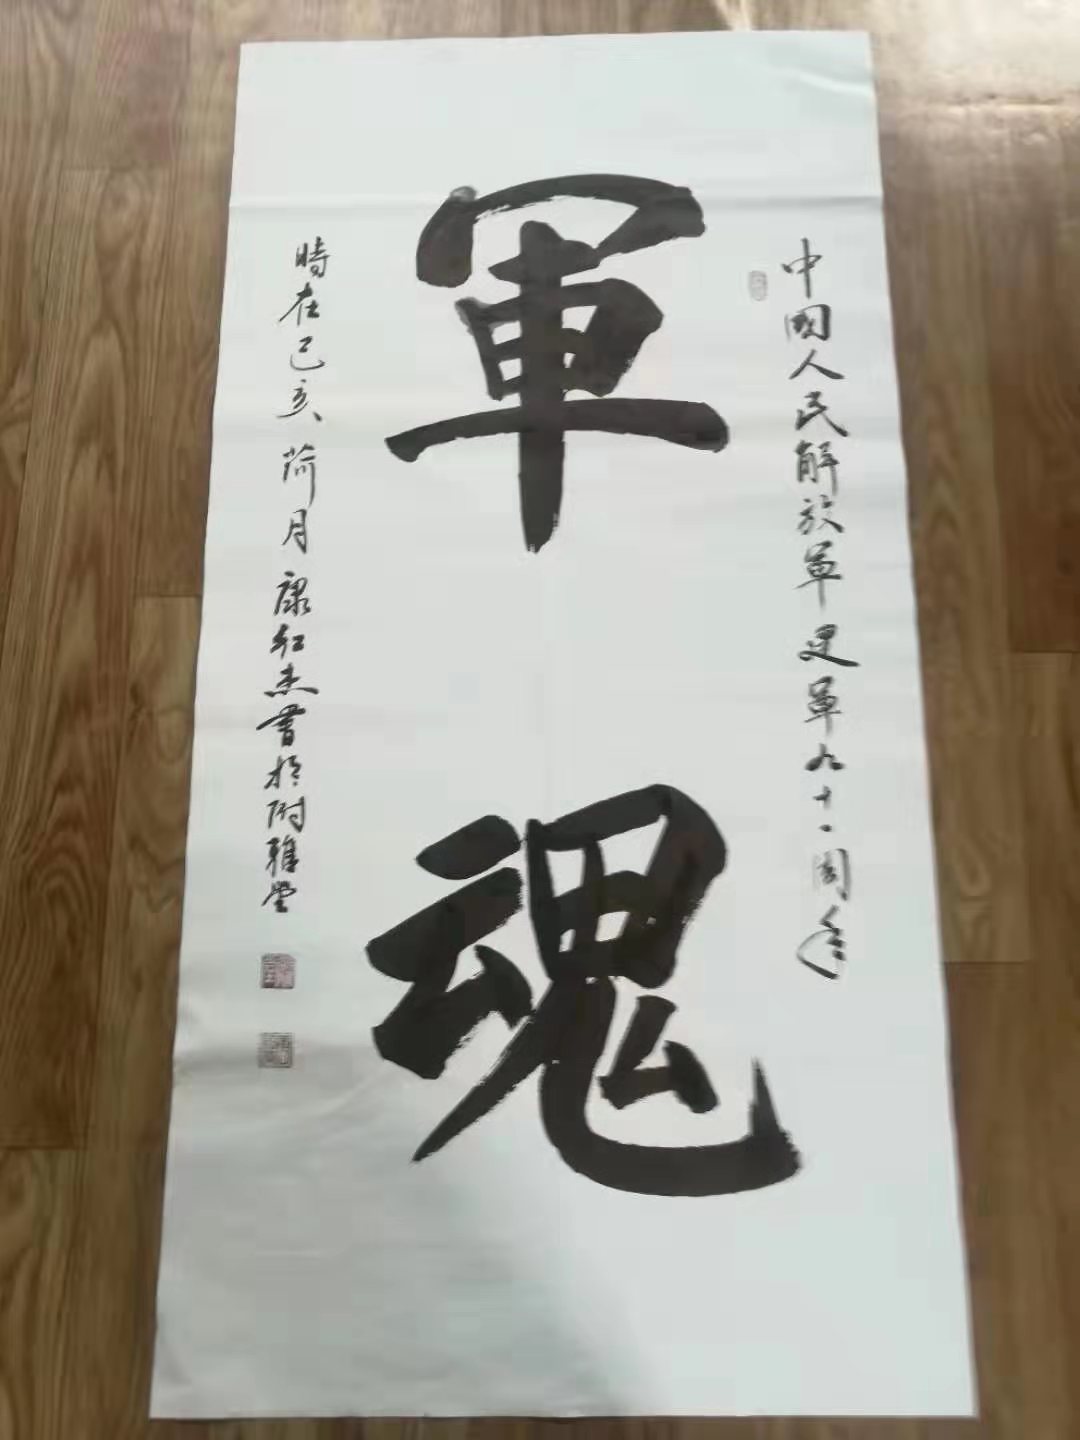 中國人民解放軍建軍九十一周年
軍魂
時在己亥荷月康红杰書於附雅堂